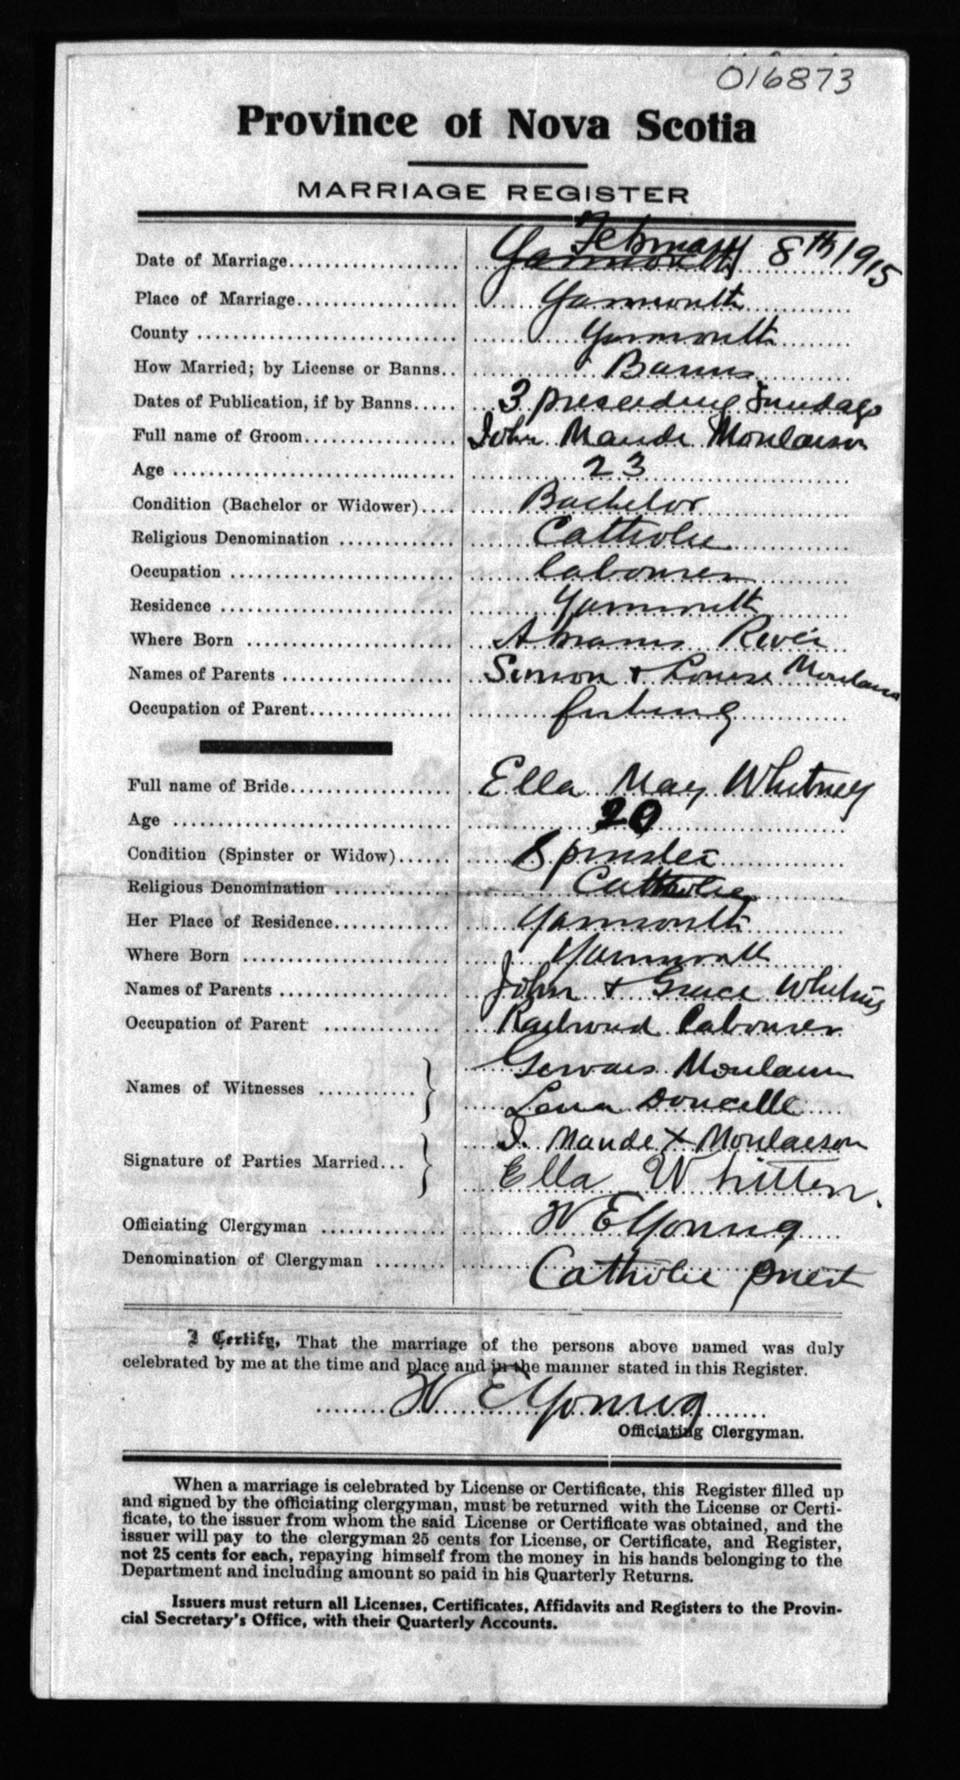 016873
Province of Nova Scotia
MARRIAGE REGISTER
Date of Marriage.................... Yarmouth February 8th 1915
Place of Marriage.................... Yarmouth
County .................... Yarmouth
How Married; by License or Banns.. Banns
Dates of Publication, if by Banns..... 3 preceeding Sundays
Full name of Groom.................... John Mande Moulaison
Age .................... 23
Condition (Bachelor or Widower).... Bachelor
Religious Denomination .................... Catholic
Occupation .................... labourer
Residence .................... Yarmouth
Where Born .................... Abrams River
Names of Parents .................... Simon & Louise Moulaison
Occupation of Parent.................... fishing
Full name of Bride.................... Ella May Whitney
Age .................... 20
Condition (Spinster or Widow)...... Spinster
Religious Denomination .................... Catholic
Her Place of Residence.................... Yarmouth
Where Born .................... Yarmouth
Names of Parents .................... John & Grace Whitney
Occupation of Parent .................... Railroad Labourer
Names of Witnesses .................... Gervais Moulaison
Lena Doucette
Signature of Parties Married... J. Mande X Moulaison
Ella Whitten.
Officiating Clergyman .................... W E Young
Denomination of Clergyman ........ Catholic priest
I Certify, That the marriage of the persons above named was duly
celebrated by me at the time and place and in the manner stated in this Register.
W E Young
Officiating Clergyman.
When a marriage is celebrated by License or Certificate, this Register filled up
and signed by the officiating clergyman, must be returned with the License or Certi-
ficate, to the issuer from whom the said License or Certificate was obtained, and the
issuer will pay to the clergyman 25 cents for License, or Certificate, and Register,
not 25 cents for each, repaying himself from the money in his hands belonging to the
Department and including amount so paid in his Quarterly Returns.
Issuers must return all Licenses, Certificates, Affidavits and Registers to the Provin-
cial Secretary's Office, with their Quarterly Accounts.